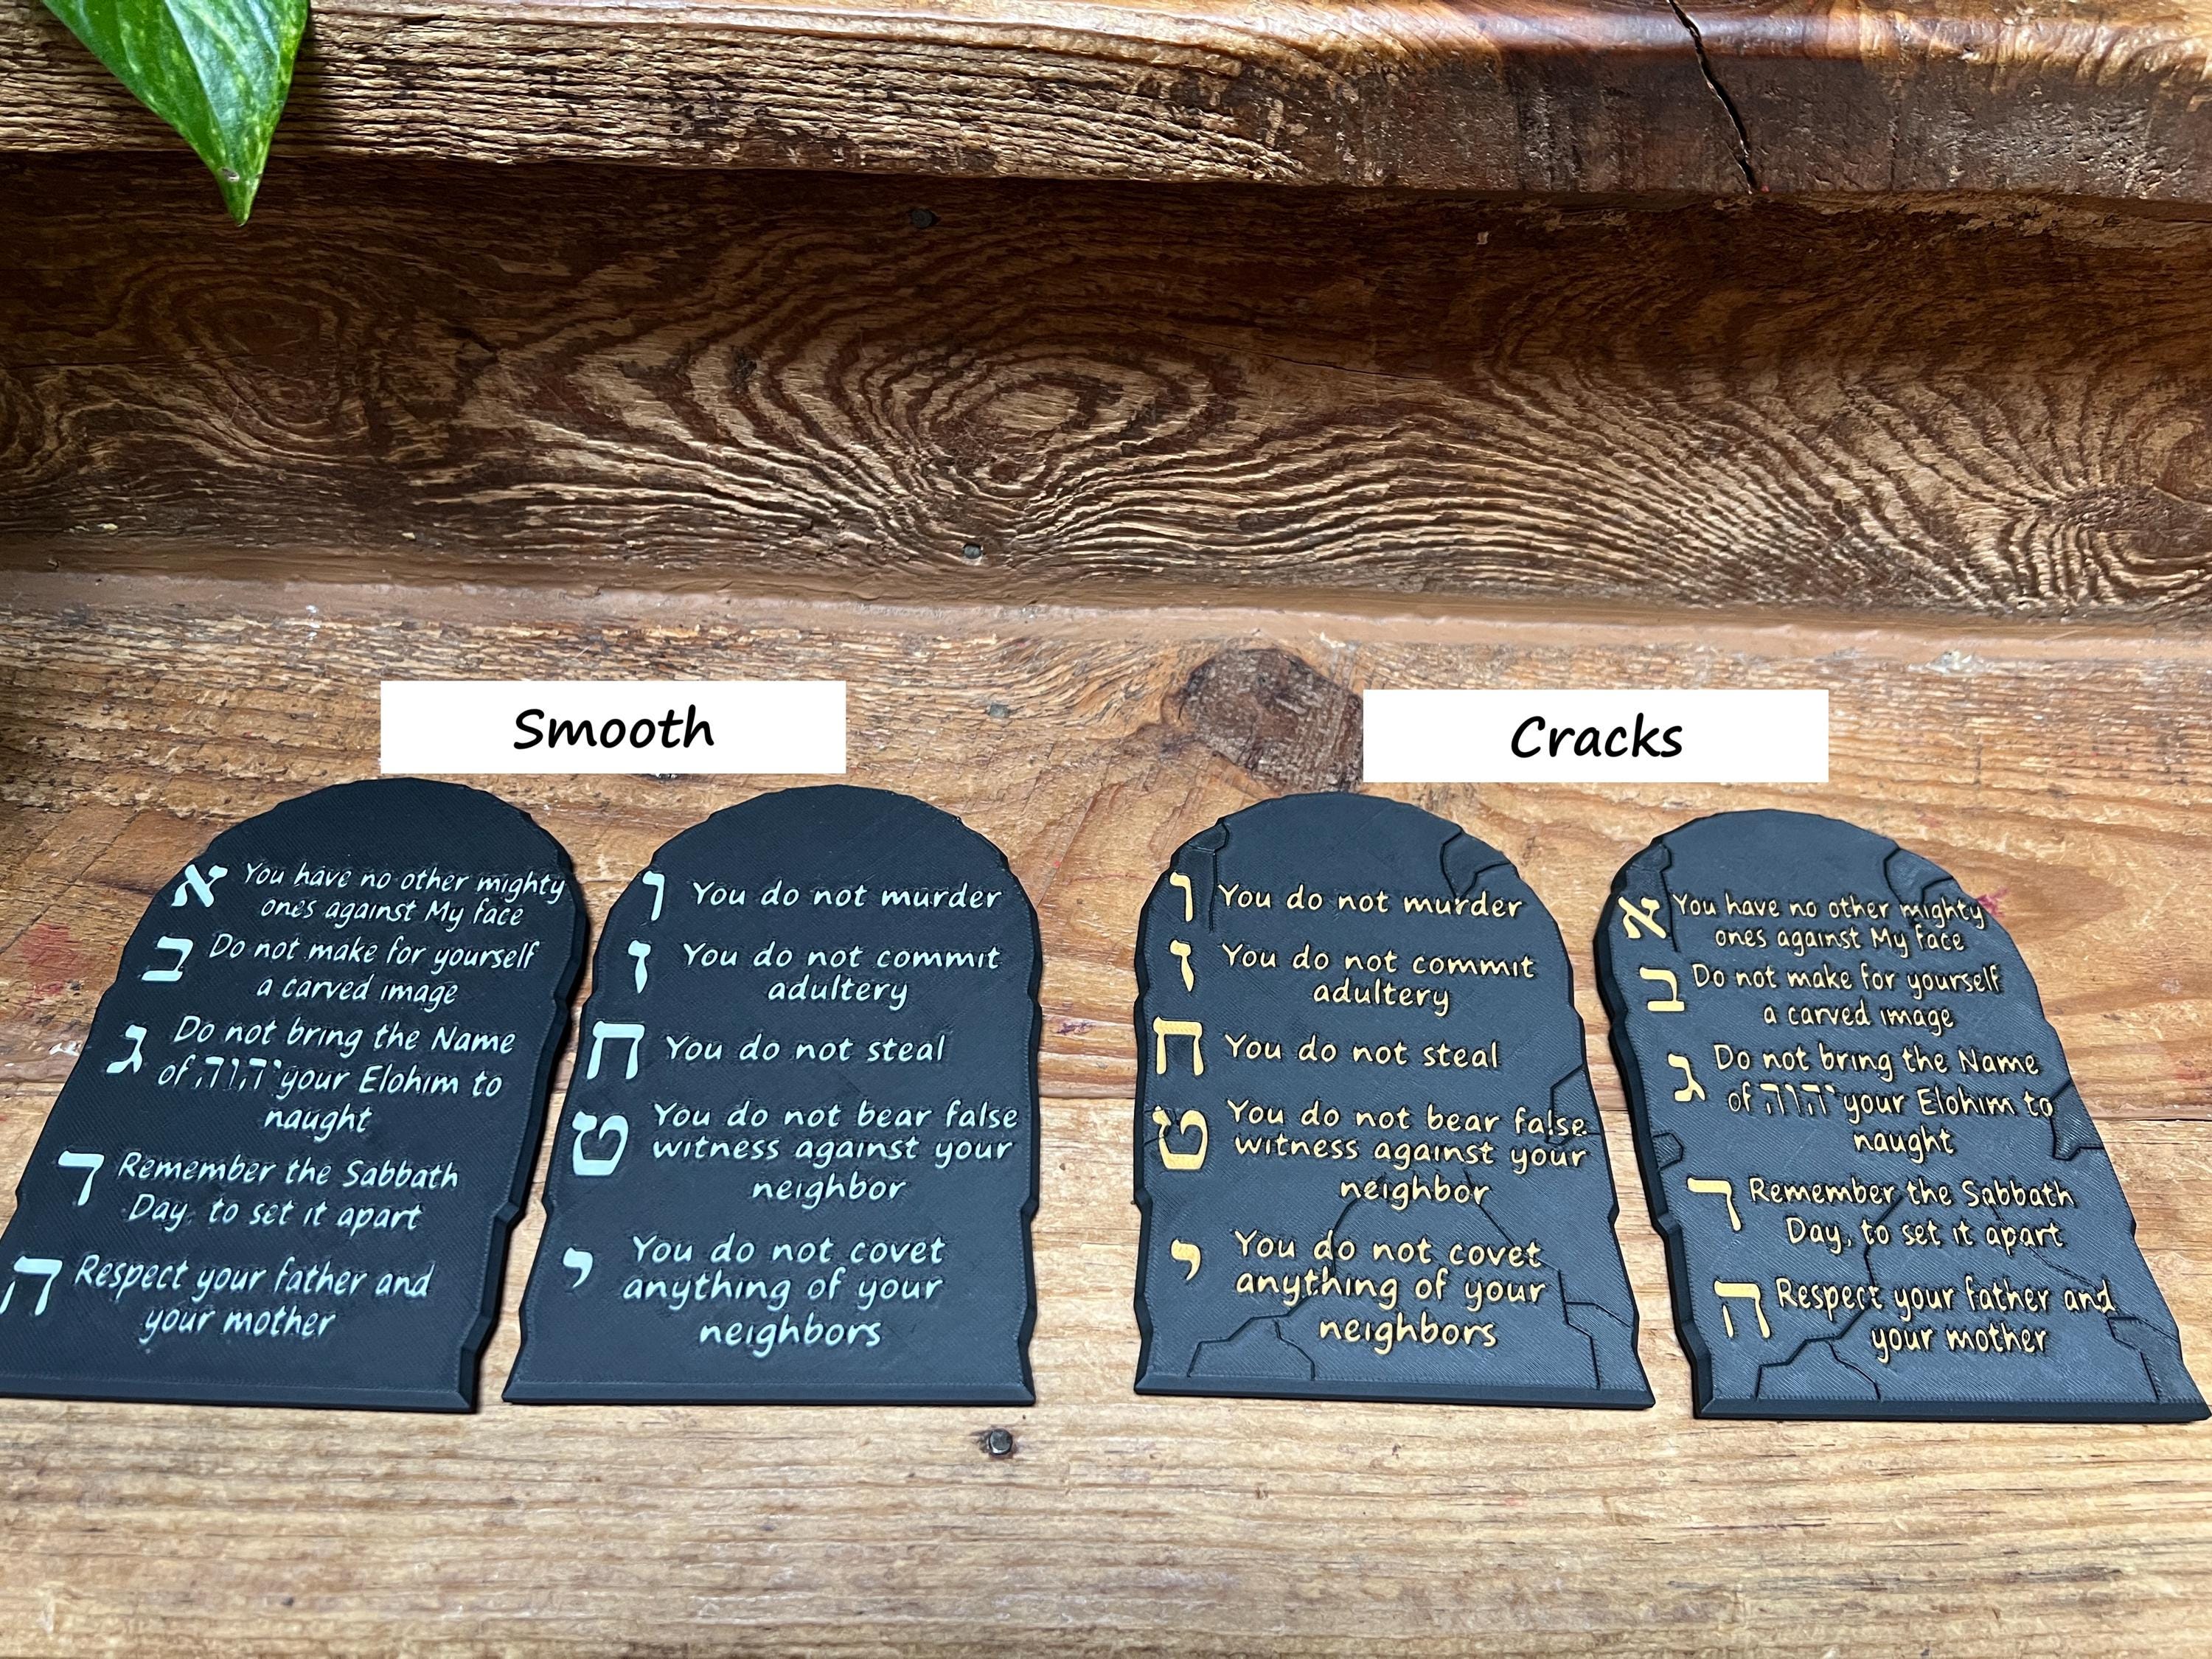 Smooth
Cracks
א You have no other mighty
ones against My face
ב Do not make for yourself
a carved image
ג Do not bring the Name
of יהוה your Elohim to
naught
ד Remember the Sabbath
Day, to set it apart
ה Respect your father and
your mother
ו You do not murder
ז You do not commit
adultery
ח You do not steal
ט You do not bear false
witness against your
neighbor
י You do not covet
anything of your
neighbors
ו You do not murder
ז You do not commit
adultery
ח You do not steal
ט You do not bear false
witness against your
neighbor
י You do not covet
anything of your
neighbors
א You have no other mighty
ones against My face
ב Do not make for yourself
a carved image
ג Do not bring the Name
of יהוה your Elohim to
naught
ד Remember the Sabbath
Day, to set it apart
ה Respect your father and
your mother